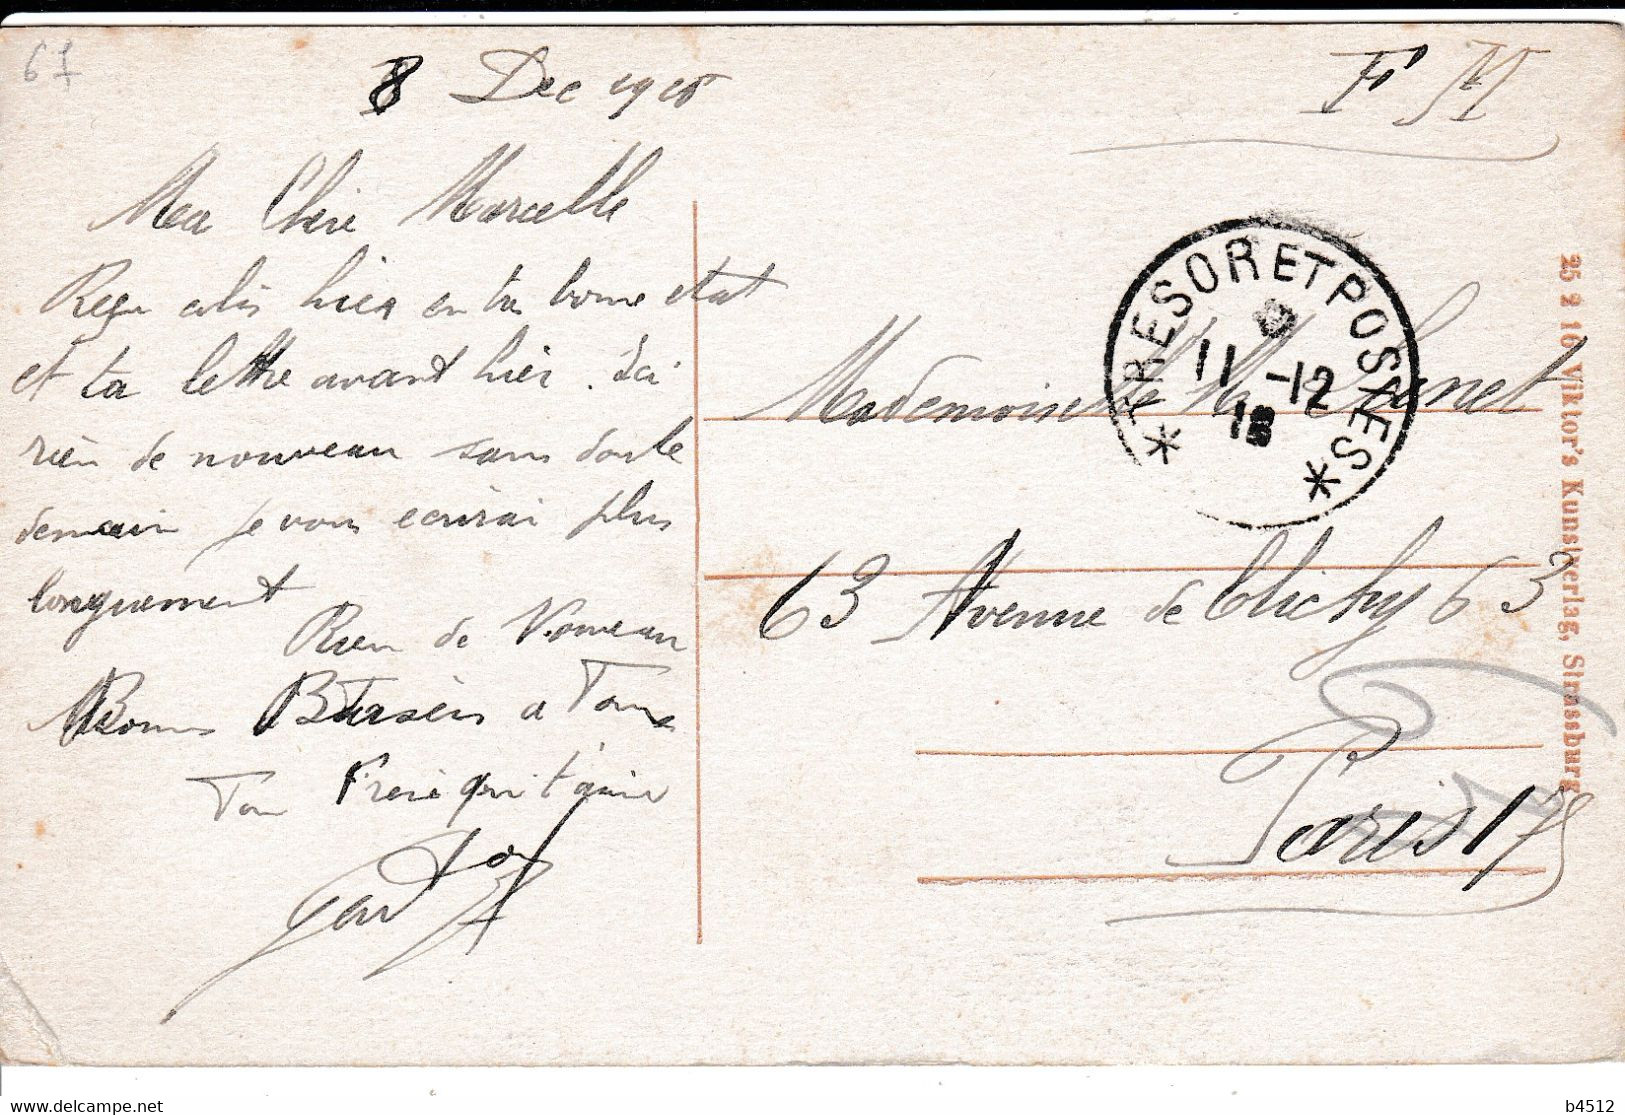 67
8 Dec 1918
F M
Ma Chère Marcelle
Reçu colis hier en très bonne etat
et ta lettre avant hier. J'ai
rien de nouveau sans doute
demain je vous ecrirai plus
longuement
Rien de Nouveau
Bons Baisers a Tous
Ton Frère qui t'aime
TRESOR ET POSTES
11 -12
18
Mademoiselle M
63 Avenue de Clichy 63
Paris 17
25 2 16 Viktor's Kunstverlag, Strassburg
www.delcampe.net
b4512